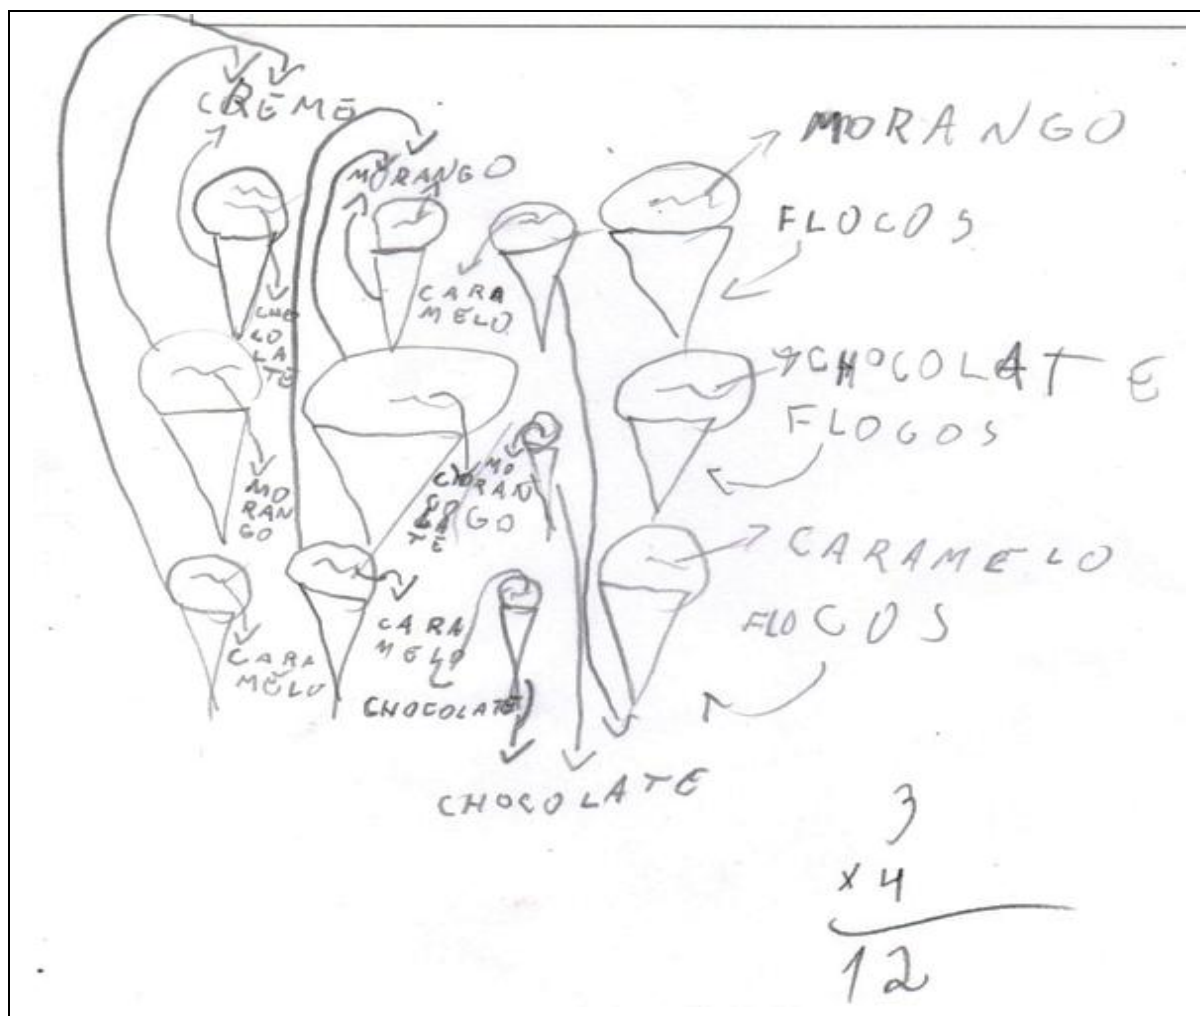 CREME
MORANGO
MORANGO
FLOCOS
CARA
MELO
CHO
CO
LA
TE
CHOCOLATE
FLOCOS
MO
RAN
GO
MO
RAN
GO
CARAMELO
FLOCOS
CARA
MELO
CARA
MELO
CHOCOLATE
CHOCOLATE
3
x 4
12